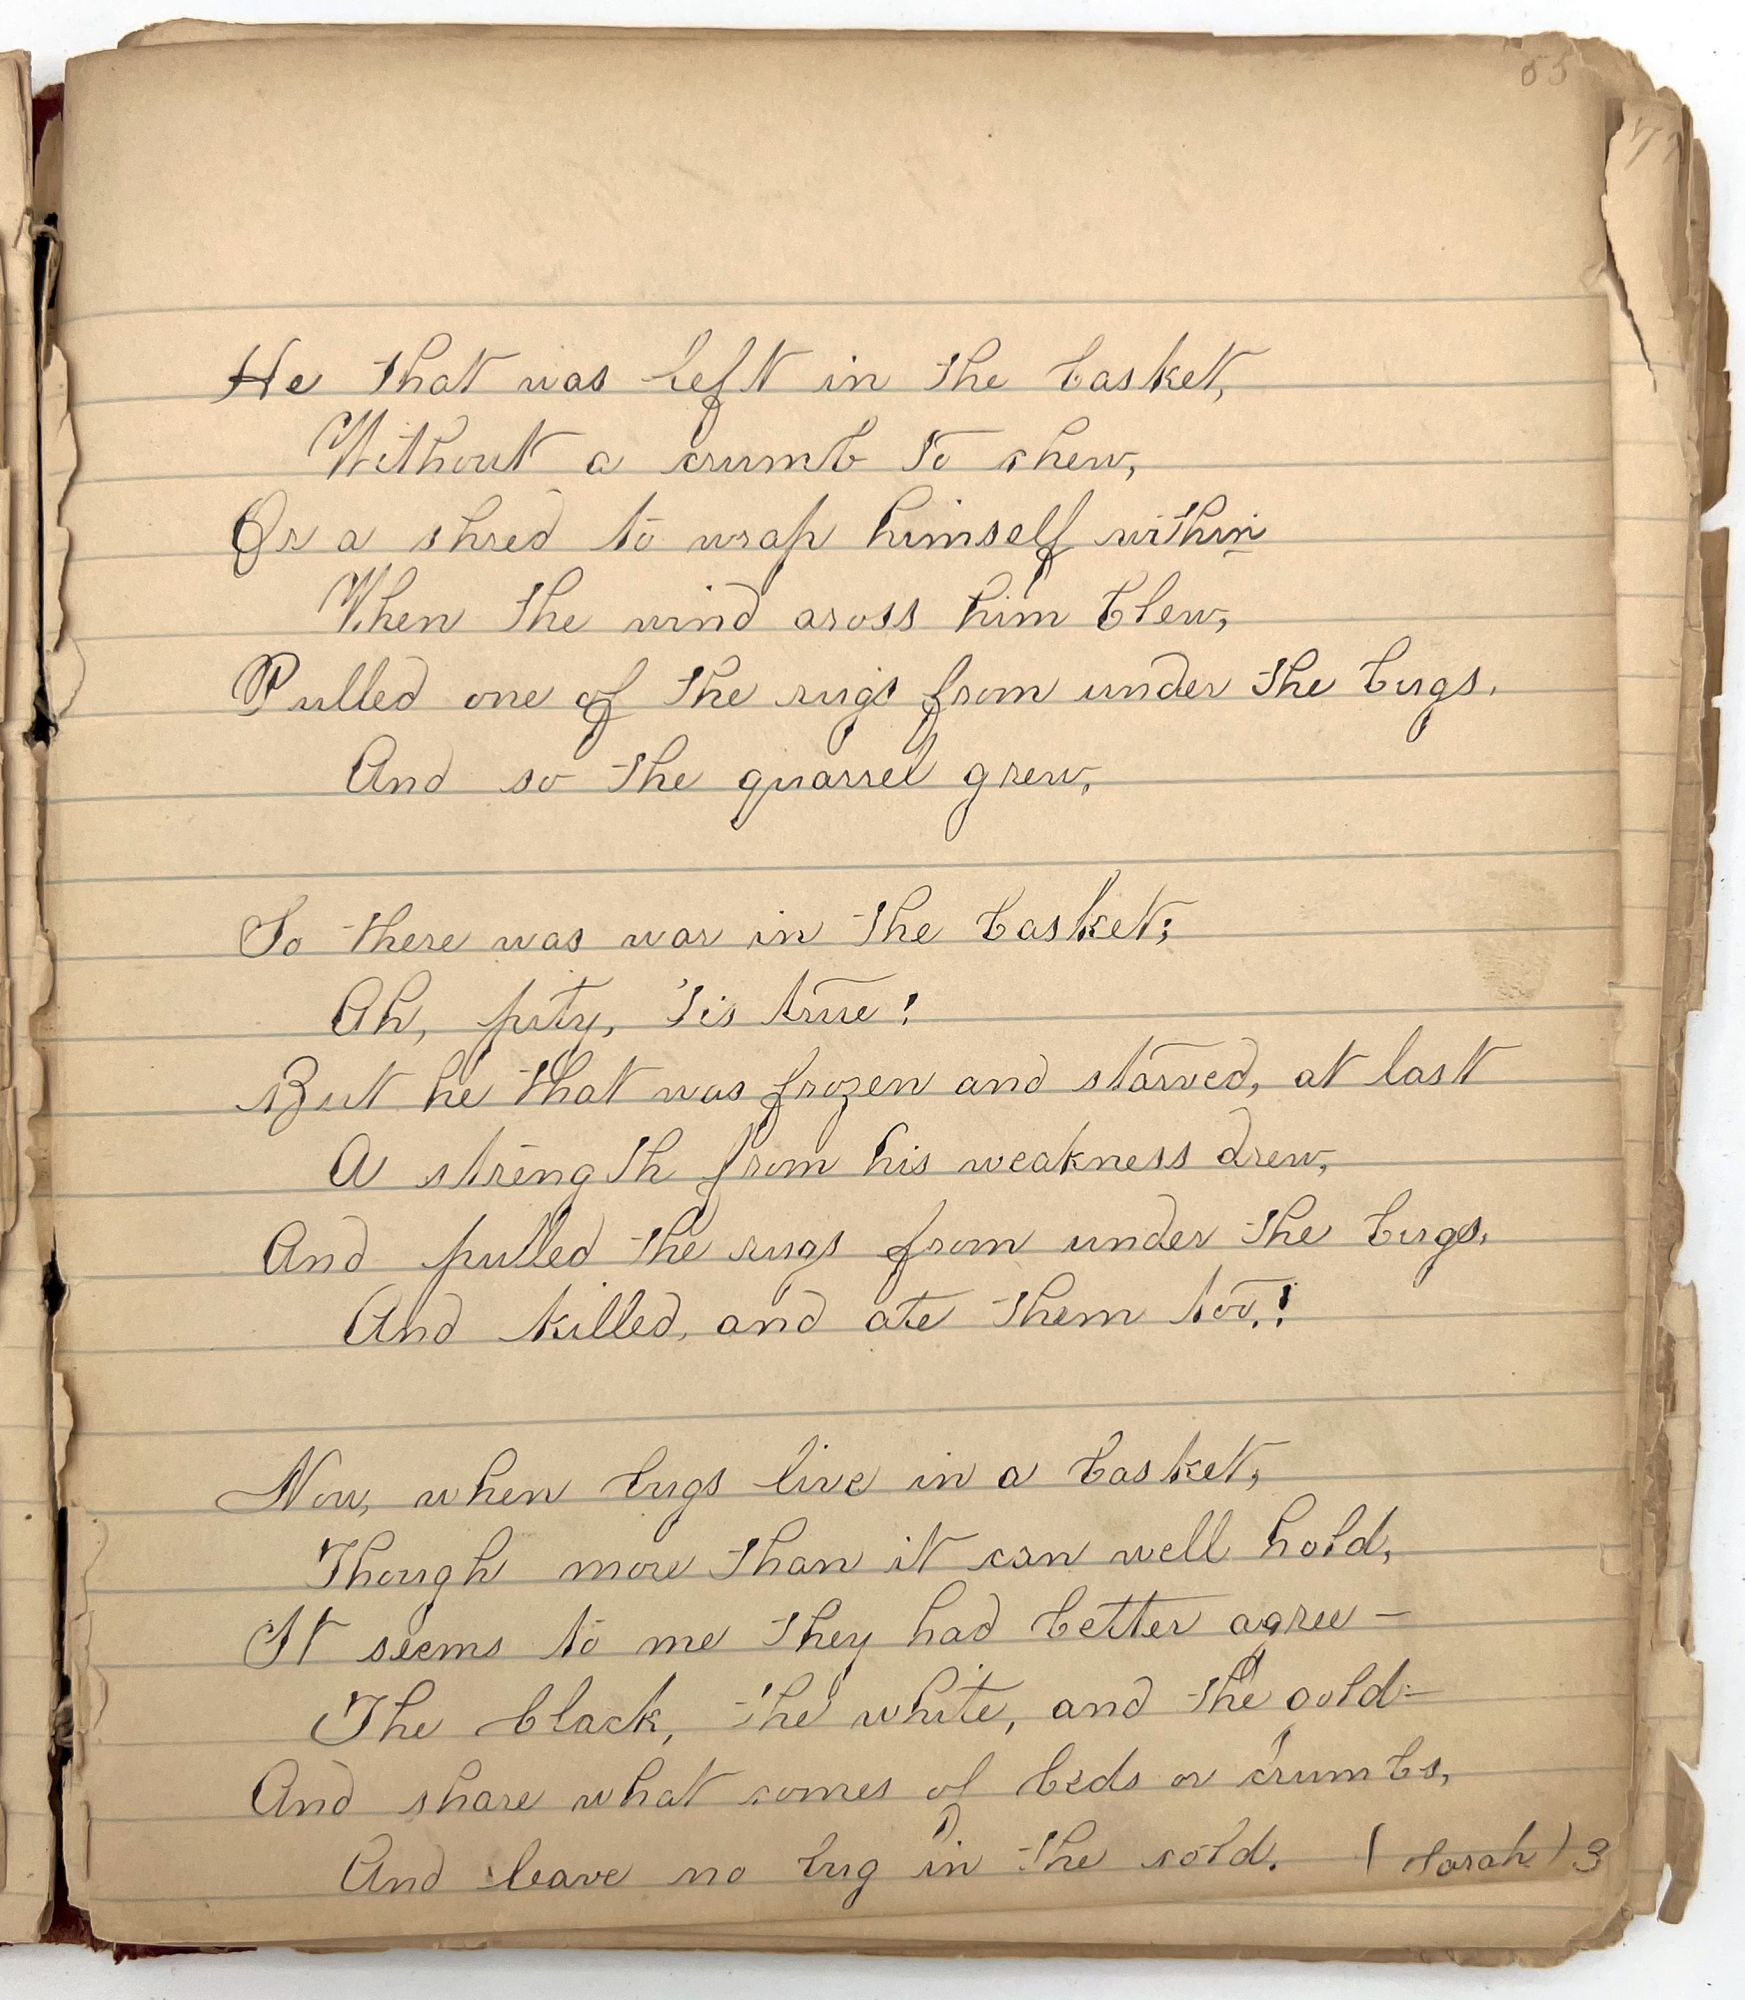 55
He that was left in the basket,
Without a crumb to chew,
Or a shred to wrap himself within
When the wind across him blew,
Pulled one of the rugs from under the bugs,
And so the quarrel grew,
So there was war in the basket;
Ah, pity, 'tis true!
But he that was frozen and starved, at last
A strength from his weakness drew,
And pulled the rugs from under the bugs,
And killed, and ate them too,!
Now, when bugs live in a basket,
Though more than it can well hold,
It seems to me they had better agree –
The black, the white, and the gold –
And share what comes of beds or crumbs,
And leave no bug in the cold. (Sarah) 3